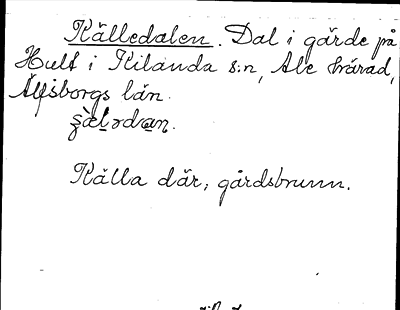 Källedalen. Dal i gärde på
Hult i Kilanda s:n, Ale härad,
Älfsborgs län.
Källa där, gårdsbrunn.